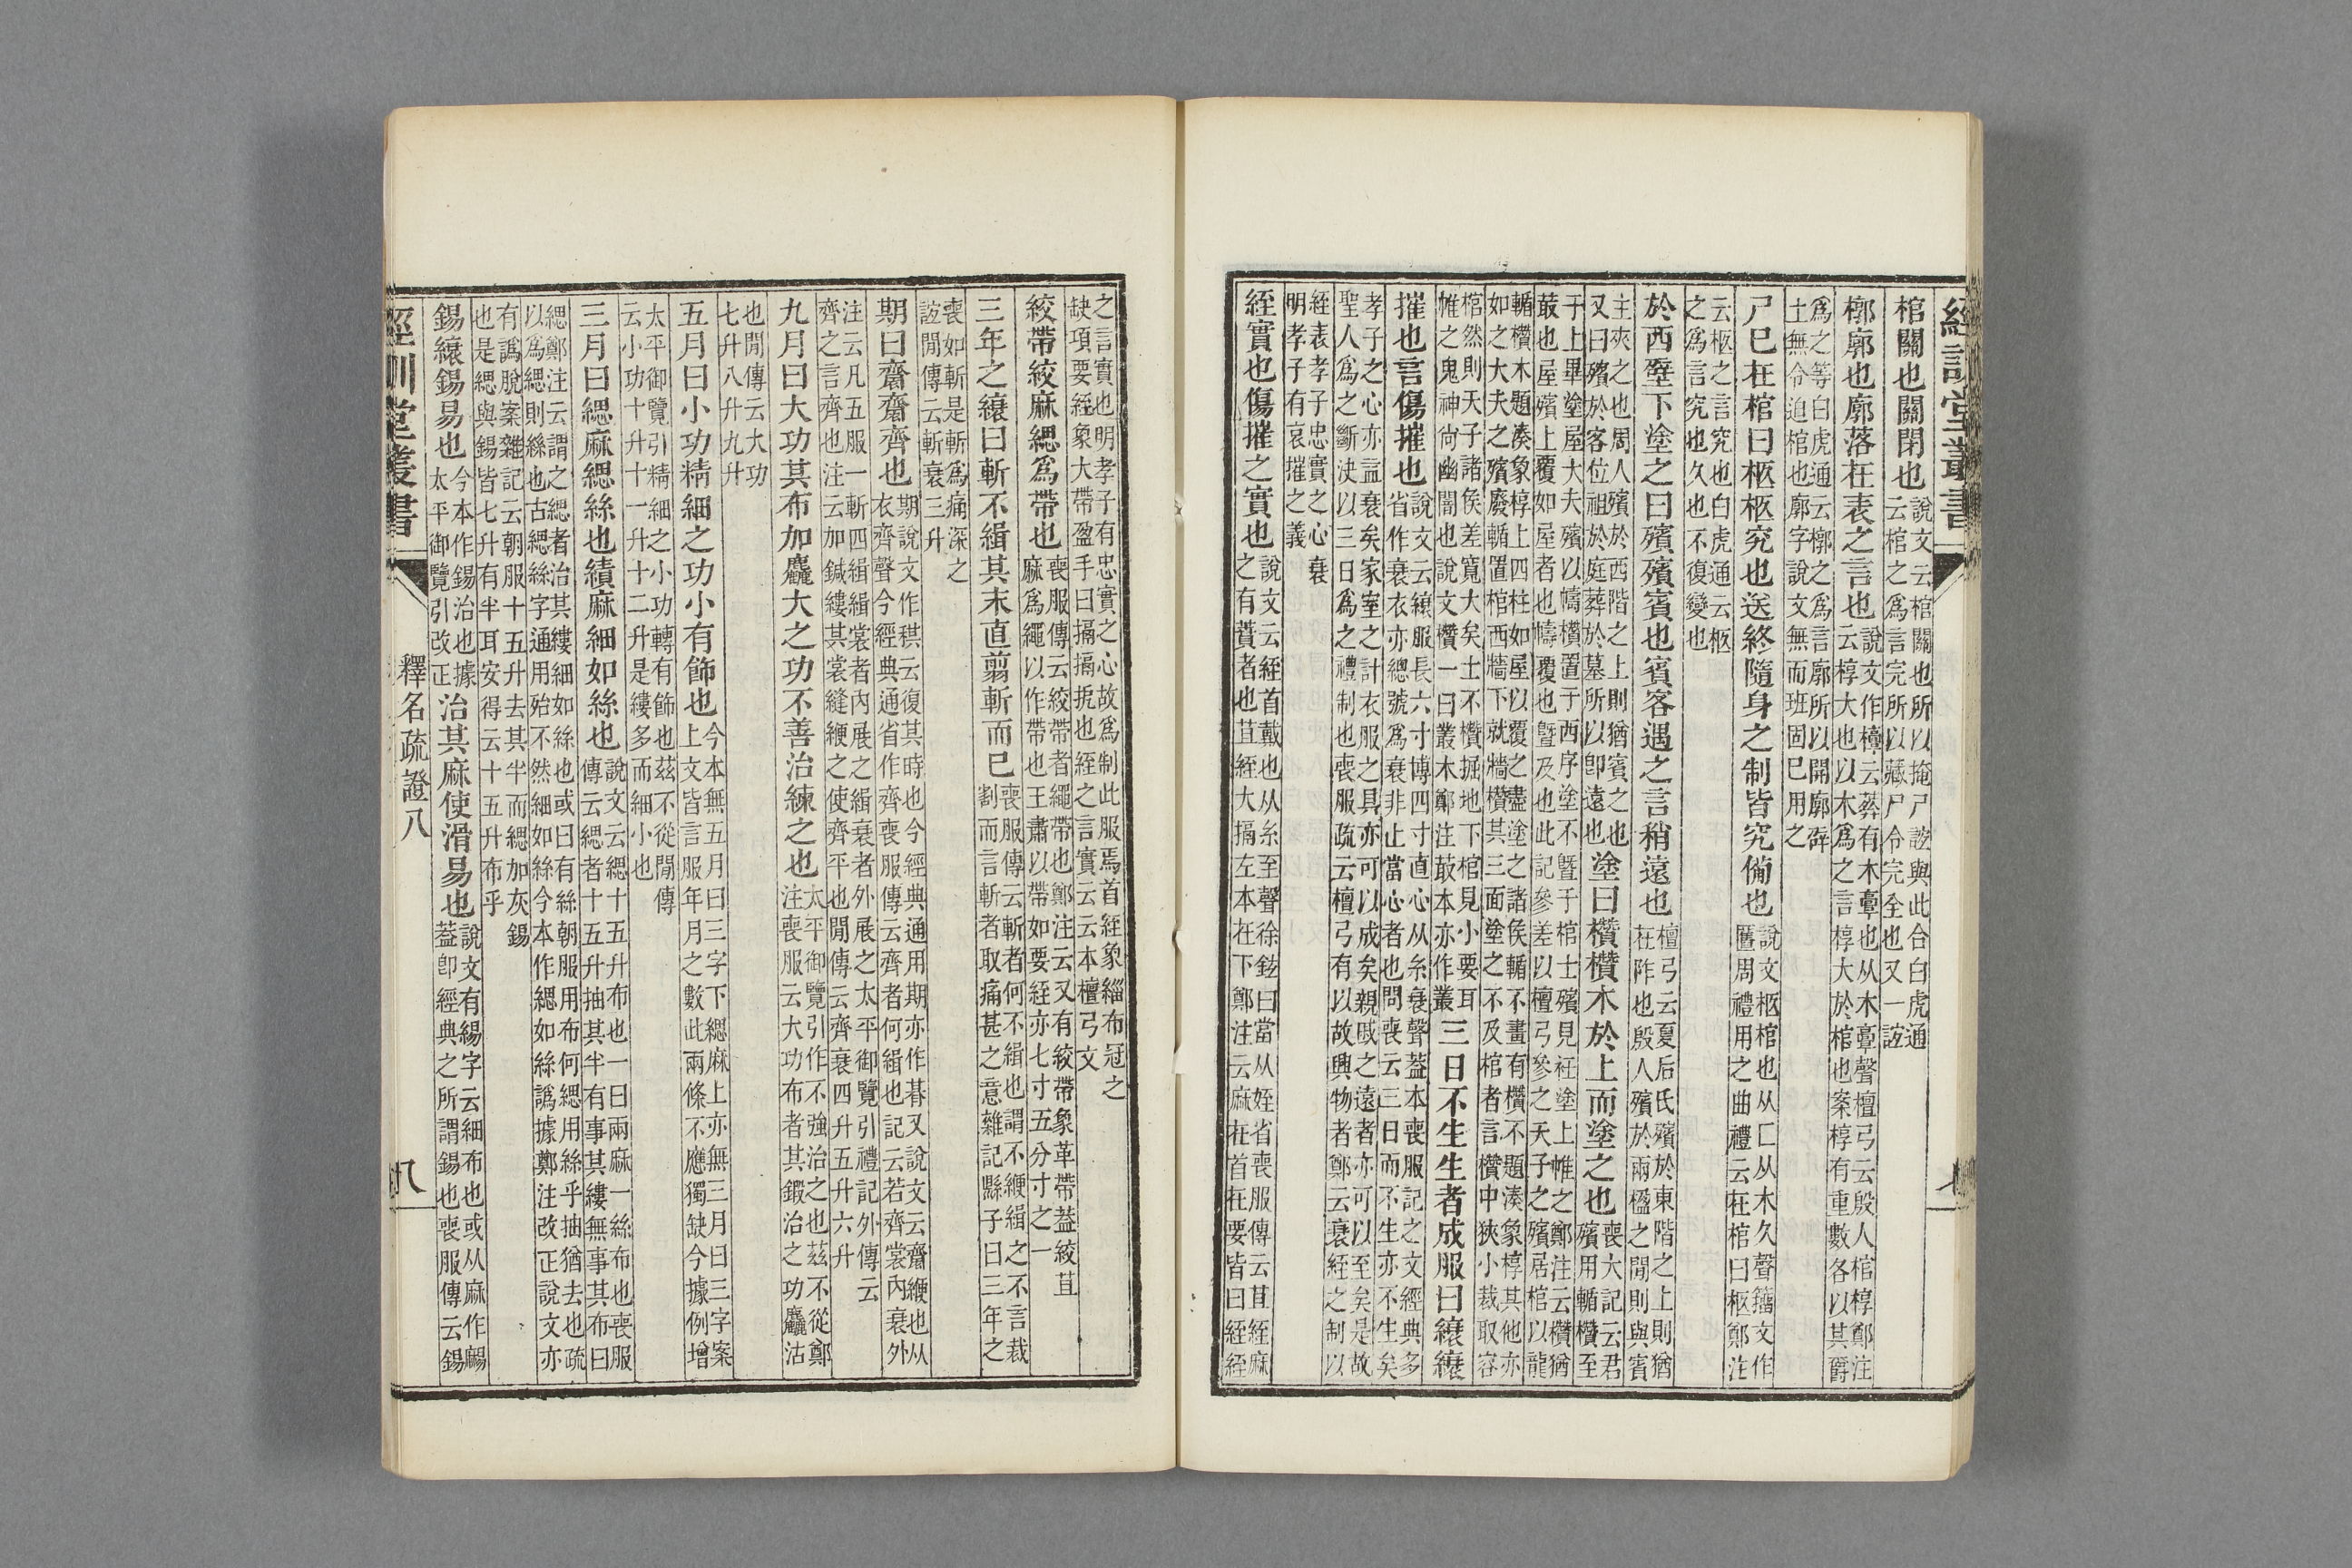 經訓堂叢書
棺關也關閉也說文云棺關也所以掩尸誼與此合白虎通云棺之爲言完所以藏尸令完全也又一誼
槨廓也廓落在表之言也說文作𣞙云葬有木𩫏也从木𩫏聲檀弓云殷人棺椁鄭注云椁大也以木爲之言椁大於棺也案椁有重數各以其爵
爲之等白虎通云槨之爲言廓所以開廓辟土無令迫棺也廓字說文無而班固已用之
尸已在棺曰柩柩究也送終隨身之制皆究備也說文柩棺也从匚从木久聲籀文作匶周禮用之曲禮云在棺曰柩鄭注
云柩之言究也白虎通云柩之爲言究也久也不復變也
於西壁下塗之曰殯殯賓也賓客遇之言稍遠也檀弓云夏后氏殯於東階之上則猶在阼也殷人殯於兩楹之閒則與賓
主夾之也周人殯於西階之上則猶賓之也又曰殯於客位祖於庭葬於墓所以卽遠也塗曰欑欑木於上而塗之也喪大記云君殯用輴欑至
于上畢塗屋大夫殯以幬欑置于西序塗不曁于棺士殯見衽塗上帷之鄭注云欑猶菆也屋殯上覆如屋者也幬覆也曁及也此記參差以檀弓參之天子之殯居棺以龍
輴欑木題湊象椁上四柱如屋以覆之盡塗之諸侯輴不畫有欑不題湊象椁其他亦如之大夫之殯廢輴置棺西牆下就牆欑其三面塗之不及棺者言欑中狹小裁取容
棺然則天子諸侯差寬大矣士不欑掘地下棺見小要耳帷之鬼神尙幽闇也說文欑一曰叢木鄭注菆本亦作叢三日不生生者成服曰縗縗
摧也言傷摧也說文云縗服長六寸博四寸直心从糸衰聲蓋本喪服記之文經典多省作衰衣亦總號爲衰非止當心者也問喪云三日而不生亦不生矣
孝子之心亦益衰矣家室之計衣服之具亦可以成矣親戚之遠者亦可以至矣是故聖人爲之斷決以三日爲之禮制也喪服疏云檀弓有以故興物者鄭云衰絰之制以
絰表孝子忠實之心衰明孝子有哀摧之義
絰實也傷摧之實也說文云絰首戴也从糸至聲徐鉉曰當从姪省喪服傳云苴絰麻之有蕡者也苴絰大搹左本在下鄭注云麻在首在要皆曰絰絰
之言實也明孝子有忠實之心故爲制此服焉首絰象緇布冠之缺項要絰象大帶盈手曰搹搹扼也絰之言實云云本檀弓文
絞帶絞麻緦爲帶也喪服傳云絞帶者繩帶也鄭注云又有絞帶象革帶蓋絞苴麻爲繩以作帶也王肅以帶如要絰亦七寸五分寸之一
三年之縗曰斬不緝其末直翦斬而已喪服傳云斬者何不緝也謂不緶緝之不言裁割而言斬者取痛甚之意雜記縣子曰三年之
喪如斬是斬爲痛深之誼閒傳云斬衰三升
期曰齌齌齊也期說文作稘云復其時也今經典通用期亦作朞又說文云齌緶也从衣齊聲今經典通省作齊喪服傳云齊者何緝也記云若齊裳內衰外
注云凡五服一斬四緝緝裳者內展之緝衰者外展之太平御覽引禮記外傳云齊之言齊也注云加鍼縷其裳縫緶之使齊平也閒傳云齊衰四升五升六升
九月曰大功其布加麤大之功不善治練之也太平御覽引作不強治之也茲不從鄭注喪服云大功布者其鍛治之功麤沽
也閒傳云大功七升八升九升
五月曰小功精細之功小有飾也今本無五月曰三字下緦麻上亦無三月曰三字案上文皆言服年月之數此兩條不應獨缺今據例增
太平御覽引精細之小功轉有飾也茲不從閒傳云小功十升十一升十二升是縷多而細小也
三月曰緦麻緦絲也績麻細如絲也說文云緦十五升布也一曰兩麻一絲布也喪服傳云緦者十五升抽其半有事其縷無事其布曰
緦鄭注云謂之緦者治其縷細如絲也或曰有絲朝服用布何緦用絲乎抽猶去也疏以爲緦則絲也古緦絲字通用殆不然細如絲今本作緦如絲譌據鄭注改正說文亦
有譌脫案雜記云朝服十五升去其半而緦加灰錫也是緦與錫皆七升有半耳安得云十五升布乎
錫縗錫易也今本作錫治也據太平御覽引改正治其麻使滑易也說文有緆字云細布也或从麻作䴬蓋卽經典之所謂錫也喪服傳云錫
經訓堂叢書
釋名疏證八
八